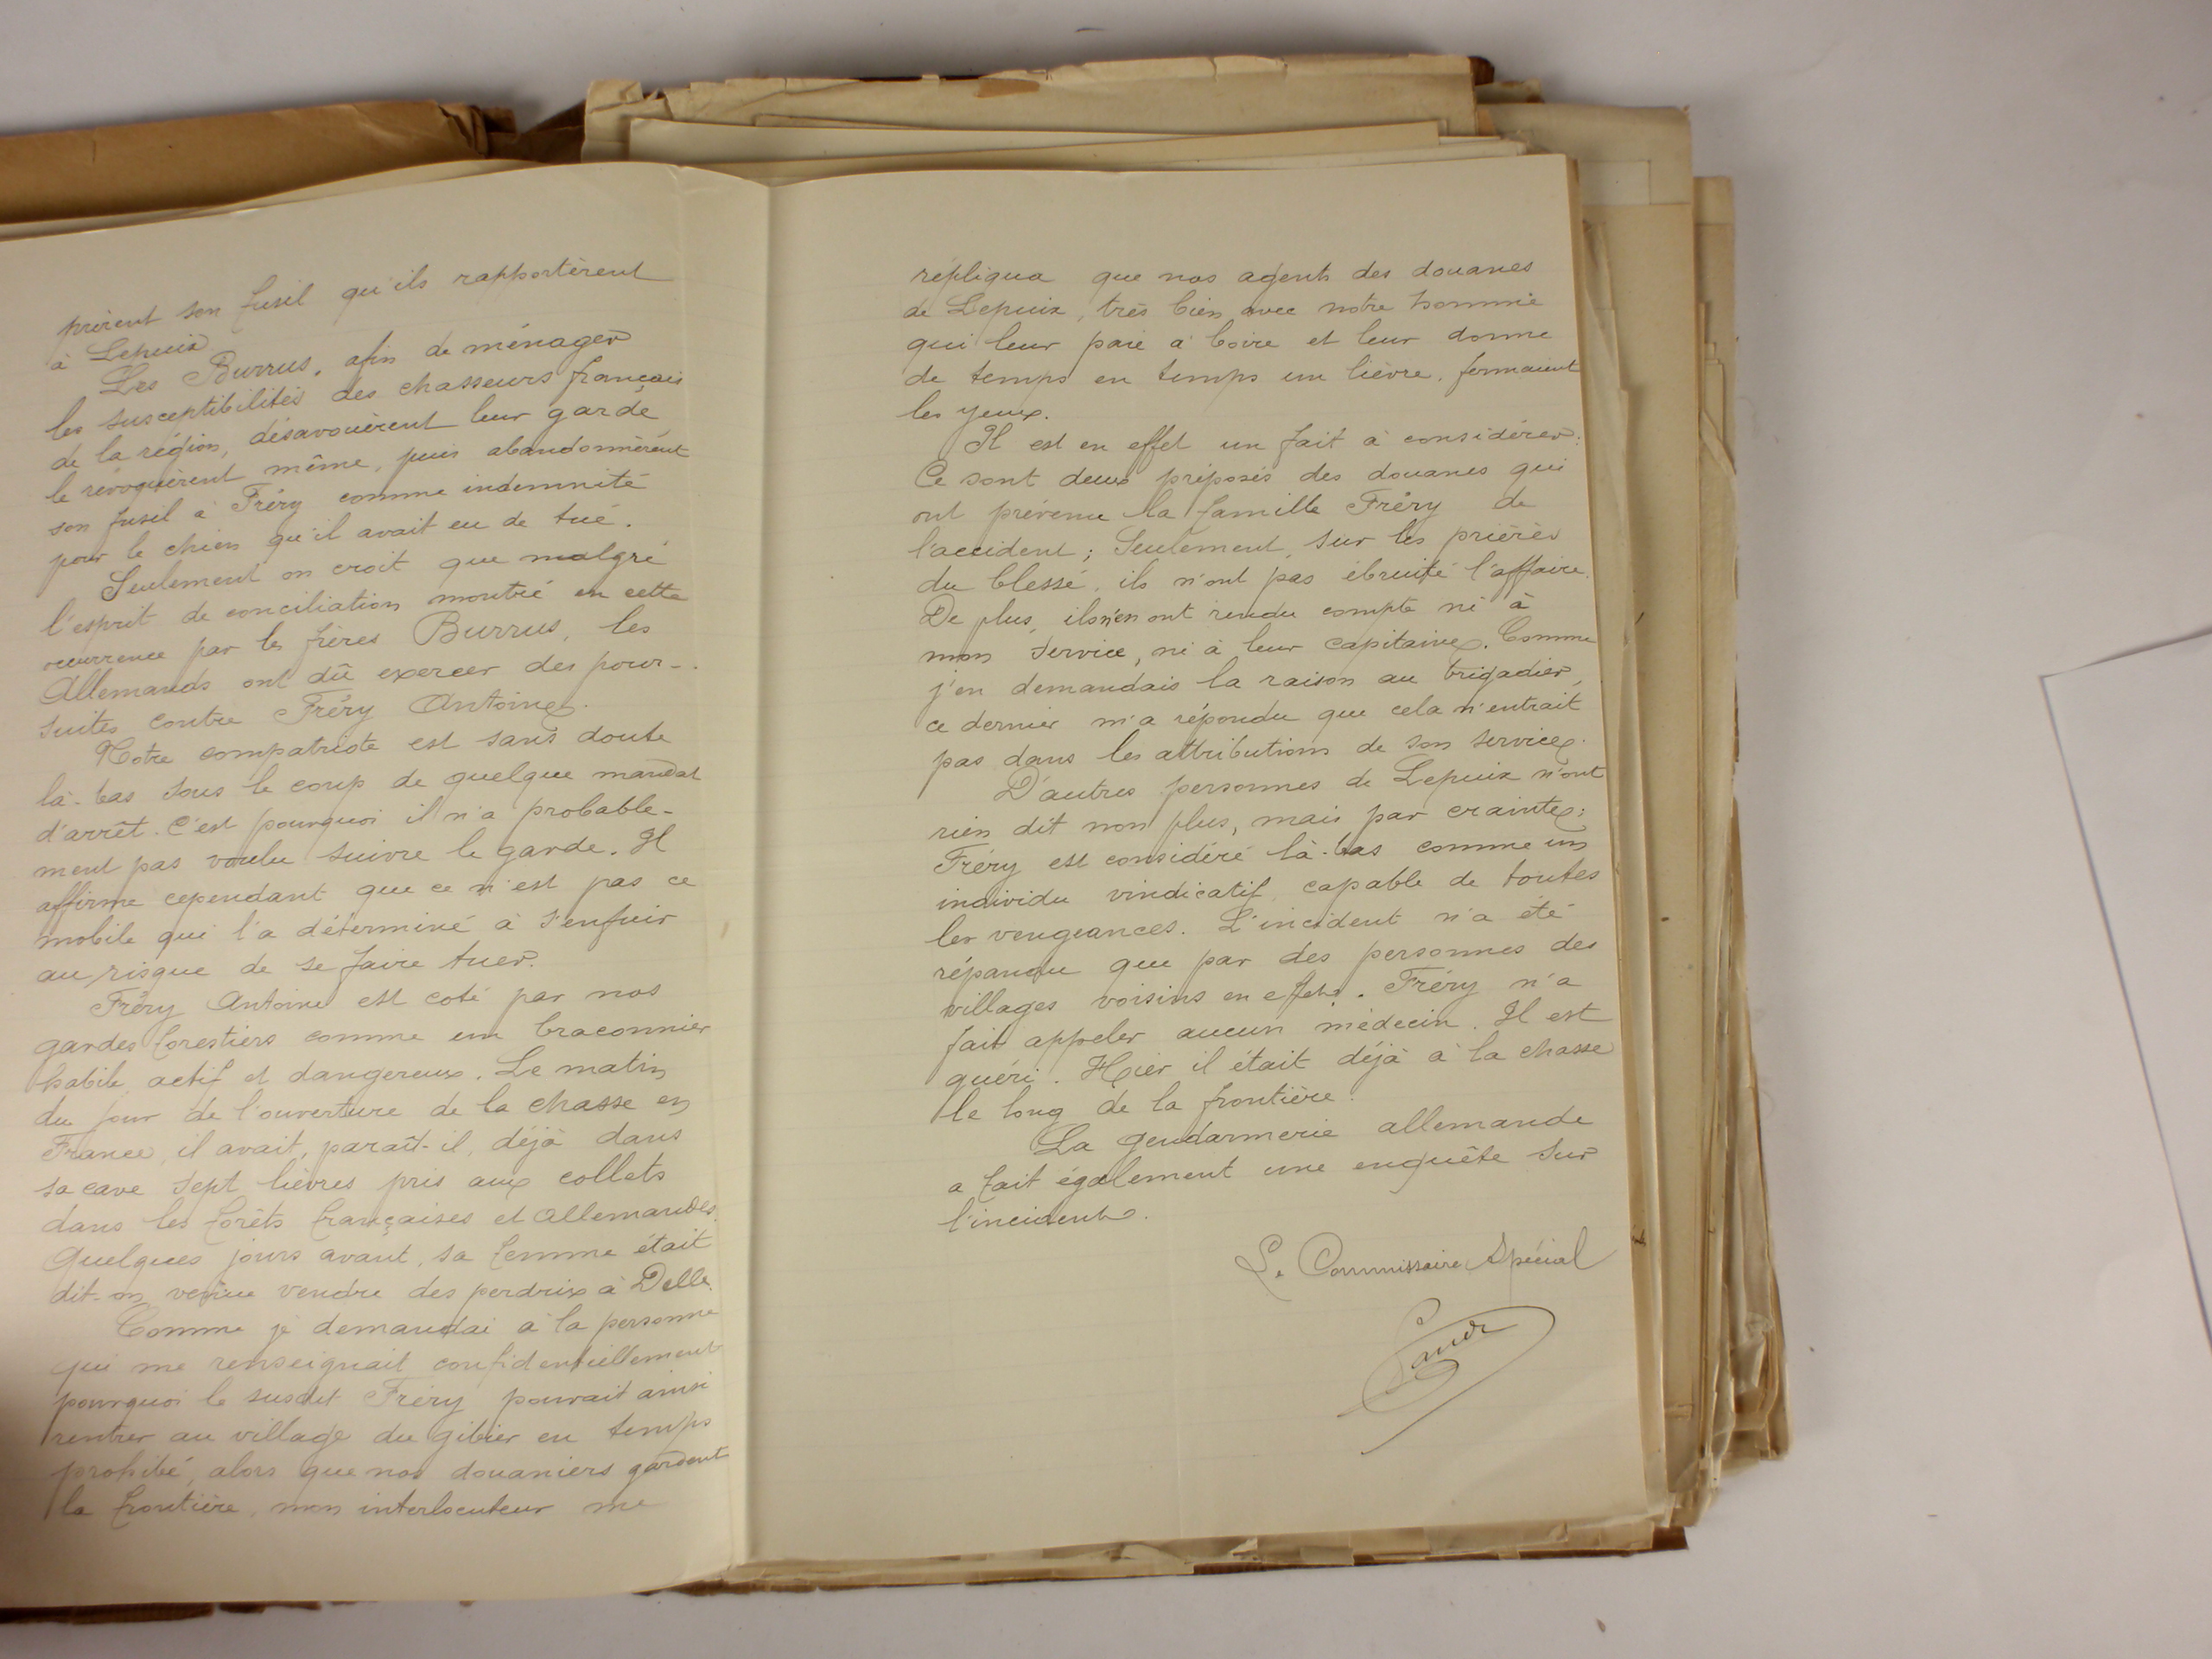 prirent son fusil qu'ils rapportèrent
à Lepuix.
Les Burrus, afin de ménager
les susceptibilités des chasseurs français
de la région, désavouèrent leur garde,
le révoquèrent même, puis abandonnèrent
son fusil à Fréry comme indemnité
pour le chien qu'il avait eu de tué.
Seulement on croit que malgré
l'esprit de conciliation montré en cette
occurrence par les frères Burrus, les
Allemands ont dû exercer des pour-
suites contre Fréry Antoine.
Notre compatriote est sans doute
là-bas sous le coup de quelque mandat
d'arrêt. C'est pourquoi il n'a probable-
ment pas voulu suivre le garde. Il
affirme cependant que ce n'est pas ce
mobile qui l'a déterminé à s'enfuir
au risque de se faire tuer.
Fréry Antoine est coté par nos
gardes forestiers comme un braconnier
habile, actif et dangereux. Le matin
du jour de l'ouverture de la chasse en
France, il avait, paraît-il, déjà dans
sa cave sept lièvres pris aux collets
dans les forêts françaises et allemandes.
Quelques jours avant, sa femme était
dit-on, venue vendre des perdrix à Delle.
Comme je demandai à la personne
qui me renseignait confidentiellement
pourquoi le susdit Fréry pouvait ainsi
rentrer au village du gibier en temps
prohibé, alors que nos douaniers gardent
la frontière, mon interlocuteur me
répliqua que nos agents des douanes
de Lepuix, très bien avec notre homme
qui leur paie à boire et leur donne
de temps en temps un lièvre, fermaient
les yeux.
Il est en effet un fait à considérer:
Ce sont deux préposés des douanes qui
ont prévenu la famille Fréry de
l'accident; Seulement, sur les prières
du blessé, ils n'ont pas ébruité l'affaire.
De plus, ils n'en ont rendu compte ni à
mon service, ni à leur capitaine. Comme
j'en demandais la raison au brigadier,
ce dernier m'a répondu que cela n'entrait
pas dans les attributions de son service.
D'autres personnes de Lepuix n'ont
rien dit non plus, mais par crainte;
Fréry est considéré là-bas comme un
individu vindicatif, capable de toutes
les vengeances. L'incident n'a été
répandu que par des personnes des
villages voisins en effet. Fréry n'a
fait appeler aucun médecin. Il est
guéri. Hier il était déjà à la chasse
le long de la frontière.
La gendarmerie allemande
a fait également une enquête sur
l'incident.
Le Commissaire Spécial